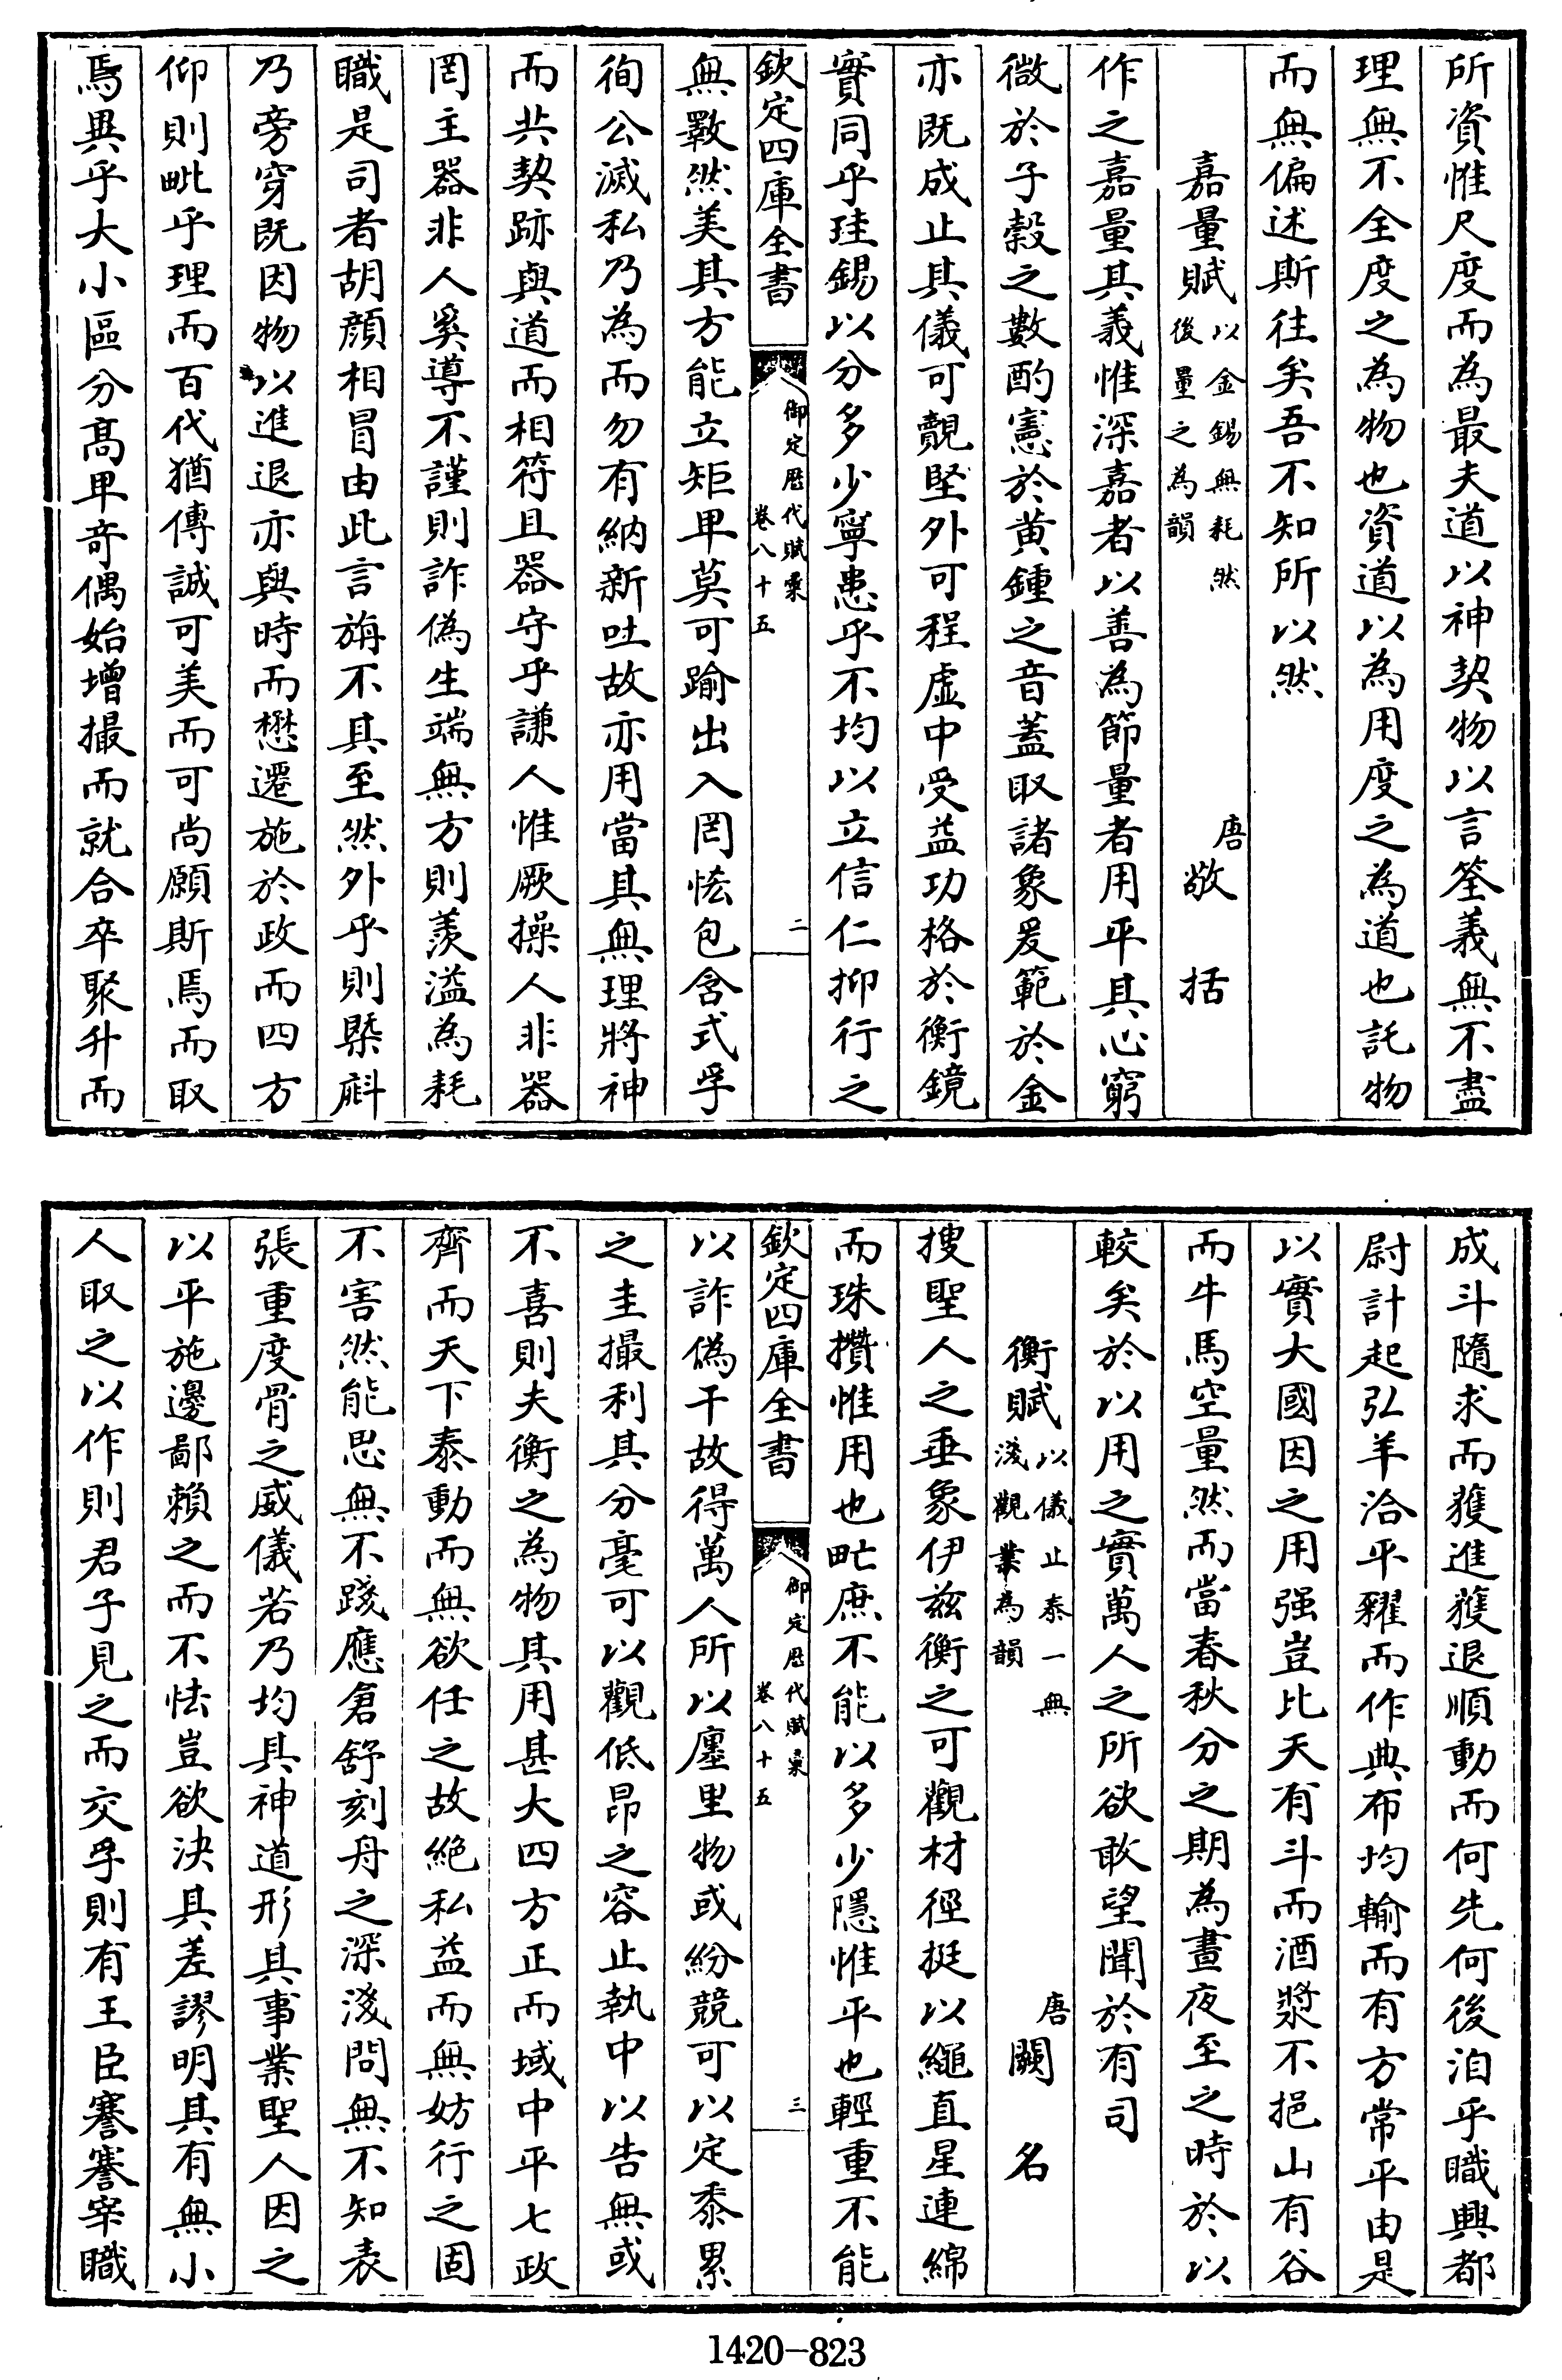 所資惟尺度而為最夫道以神契物以言筌義無不盡
理無不全度之為物也資道以為用度之為道也託物
而無偏述斯往矣吾不知所以然
嘉量賦以金錫無耗然後量之為韻 唐敬括
作之嘉量其義惟深嘉者以善為節量者用平其心窮
微於子穀之數酌憲於黄鍾之音蓋取諸象爰範於金
亦既成止其儀可覿堅外可程虚中受益功格於衡鏡
實同乎珪錫以分多少寧患乎不均以立信仁抑行之
欽定四庫全書 御定歴代賦彙 卷八十五 二
無斁然美其方能立矩卑莫可踰出入罔恡包含式孚
徇公滅私乃為而勿有納新吐故亦用當其無理將神
而共契跡與道而相符且器守乎謙人惟厥操人非器
罔主器非人奚導不謹則詐偽生端無方則羨溢為耗
職是司者胡顔相冒由此言旃不其至然外乎則槩㪷
乃旁穿既因物以進退亦與時而懋遷施於政而四方
仰則毗乎理而百代猶傳誠可美而可尚願斯焉而取
焉異乎大小區分髙卑竒偶始增撮而就合卒聚升而
成斗隨求而獲進獲退順動而何先何後洎乎職興都
尉計起弘羊洽平糴而作典布均輸而有方常平由是
以實大國因之用强豈比天有斗而酒漿不挹山有谷
而牛馬空量然而當春秋分之期為晝夜至之時於以
較矣於以用之實萬人之所欲敢望聞於有司
衡賦以儀止泰一無淺觀業為韻 唐闕名
搜聖人之垂象伊兹衡之可觀材徑挺以繩直星連綿
而珠攢惟用也甿庶不能以多少隱惟平也輕重不能
欽定四庫全書 御定歴代賦彙 卷八十五 三
以詐偽干故得萬人所以廛里物或紛競可以定黍累
之圭撮利其分毫可以觀低昂之容止執中以告無或
不喜則夫衡之為物其用甚大四方正而域中平七政
齊而天下泰動而無欲任之故絶私益而無妨行之固
不害然能思無不踐應倉舒刻舟之深淺問無不知表
張重度骨之威儀若乃均其神道形其事業聖人因之
以平施邊鄙賴之而不怯豈欲決其差謬明其有無小
人取之以作則君子見之而交孚則有王臣謇謇宰職
1420-823